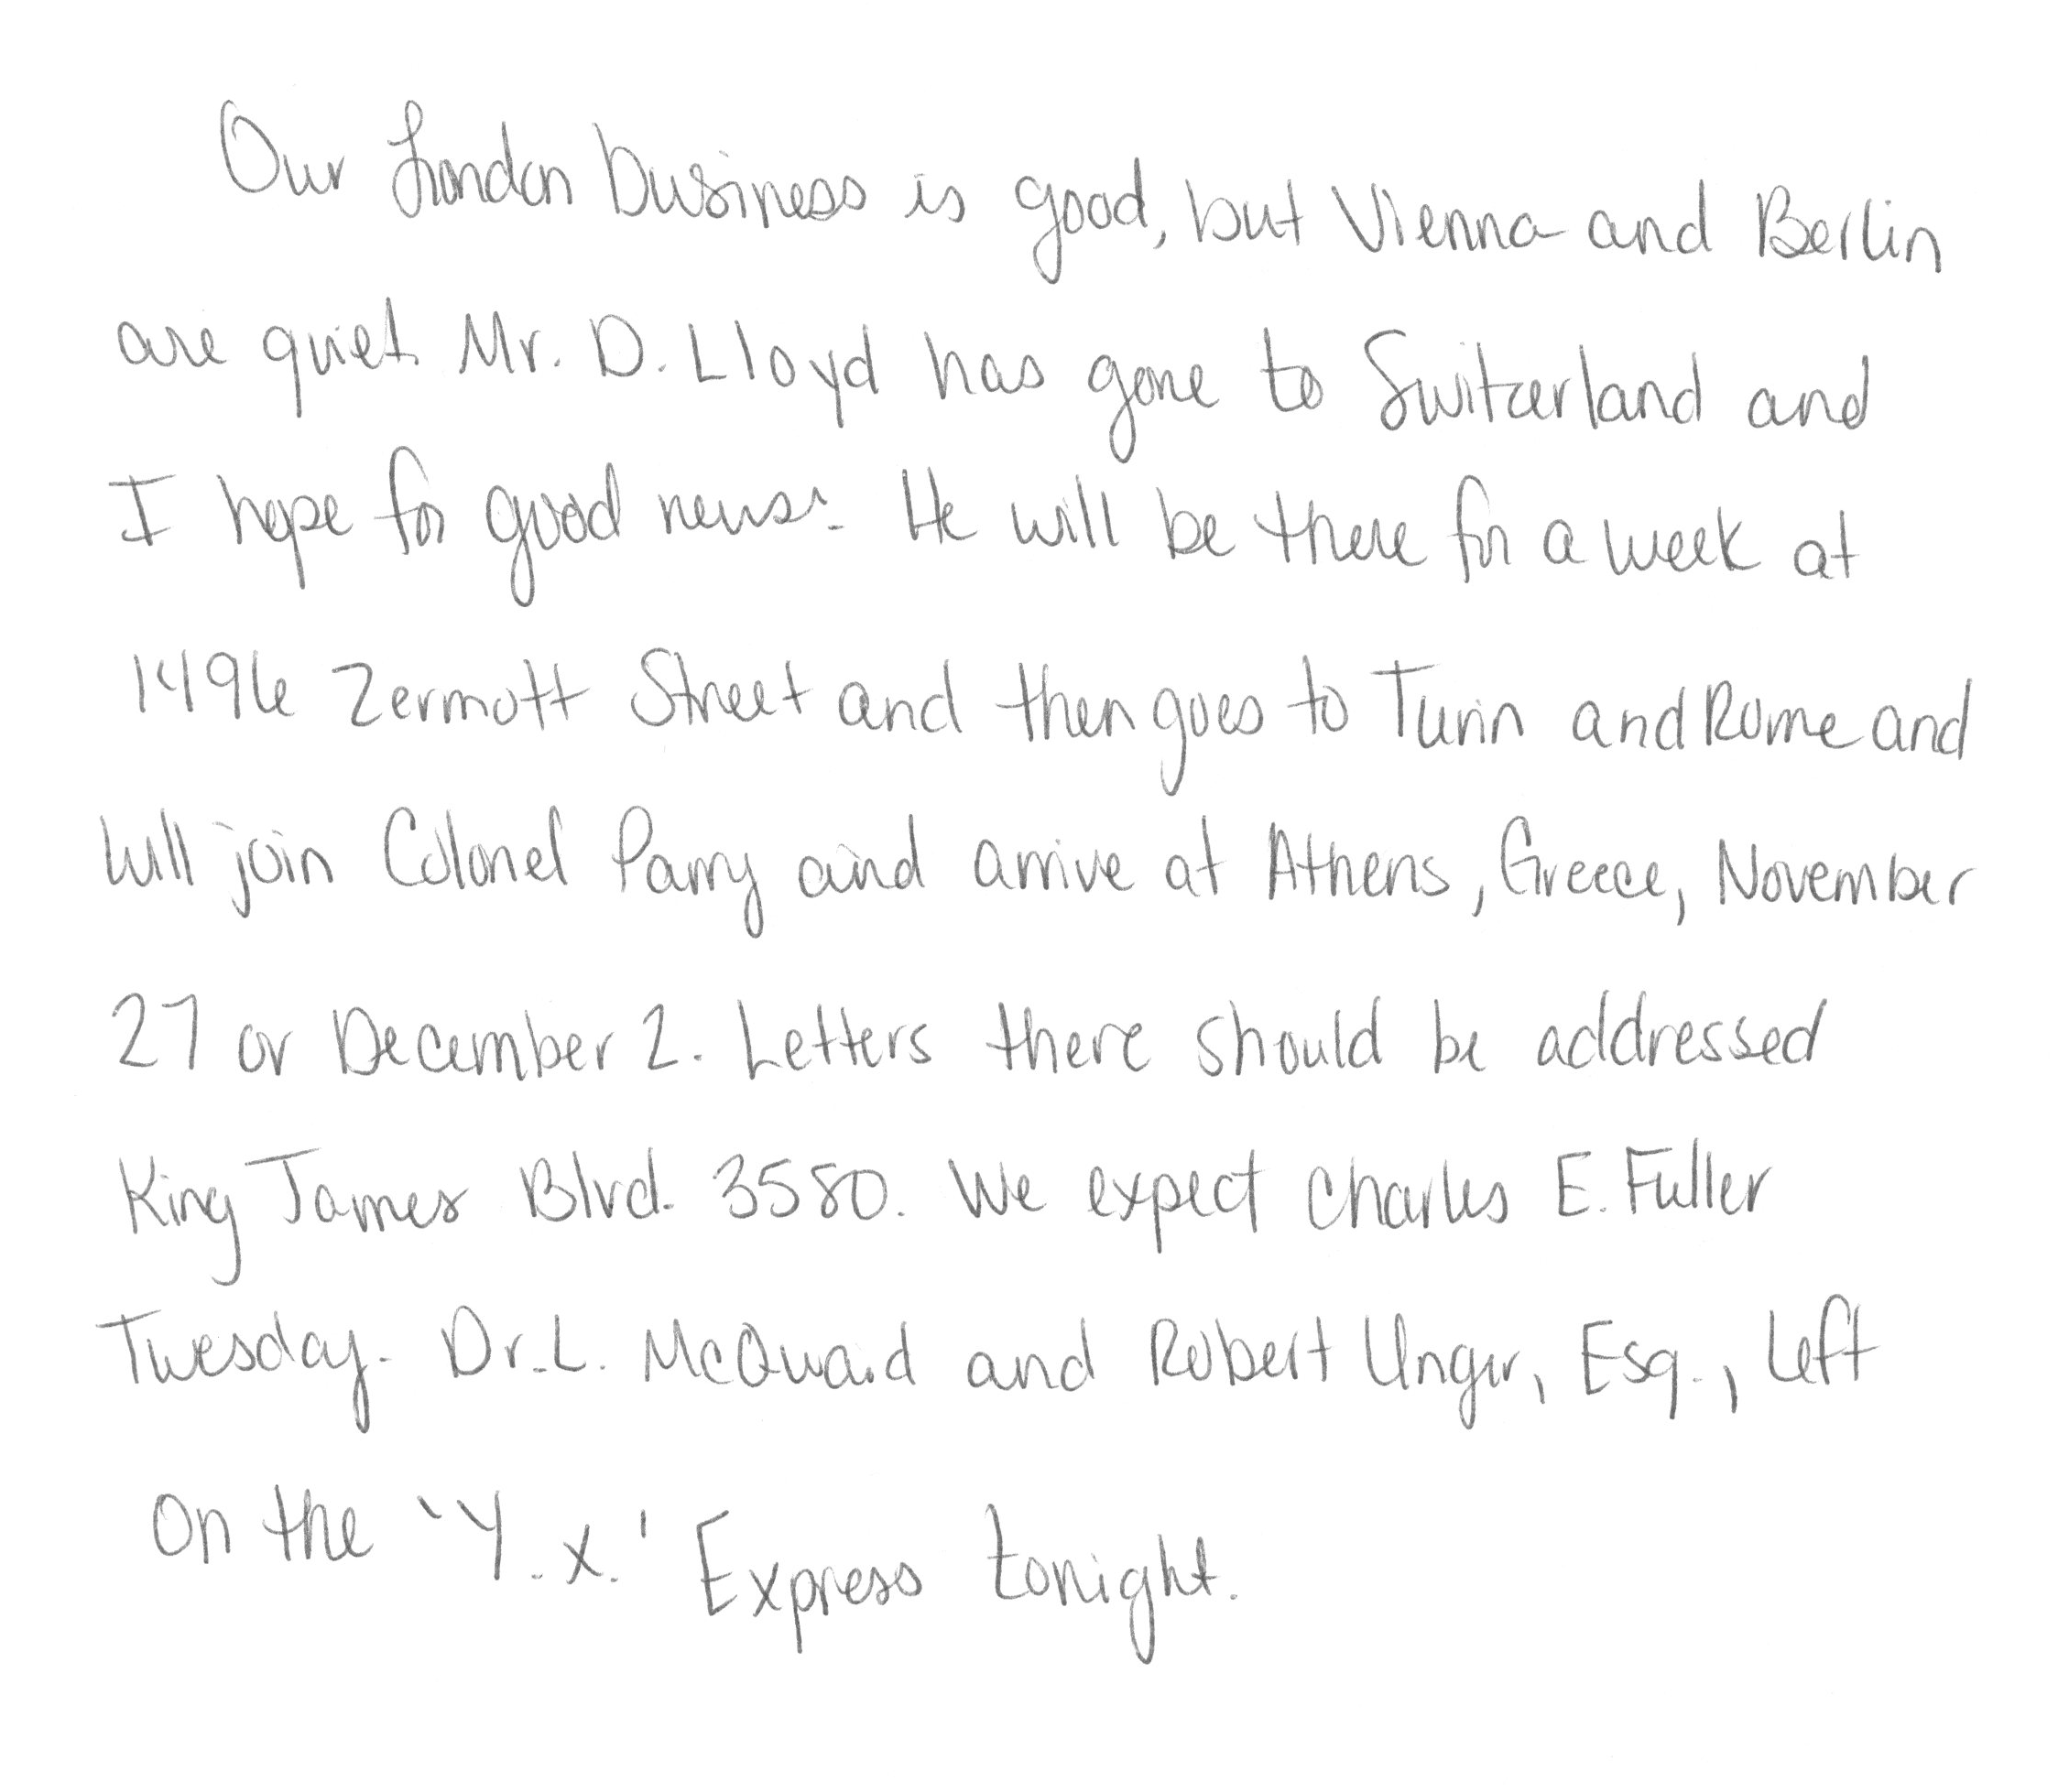 Our London business is good, but Vienna and Berlin
are quiet. Mr. D. Lloyd has gone to Switzerland and
I hope for good news. He will be there for a week at
1496 Zermott Street and then goes to Turin and Rome and
will join Colonel Parry and arrive at Athens, Greece, November
27 or December 2. Letters there should be addressed
King James Blvd. 3580. We expect Charles E. Fuller
Tuesday. Dr. L. McQuaid and Robert Unger, Esq., left
on the 'Y.X.' Express tonight.